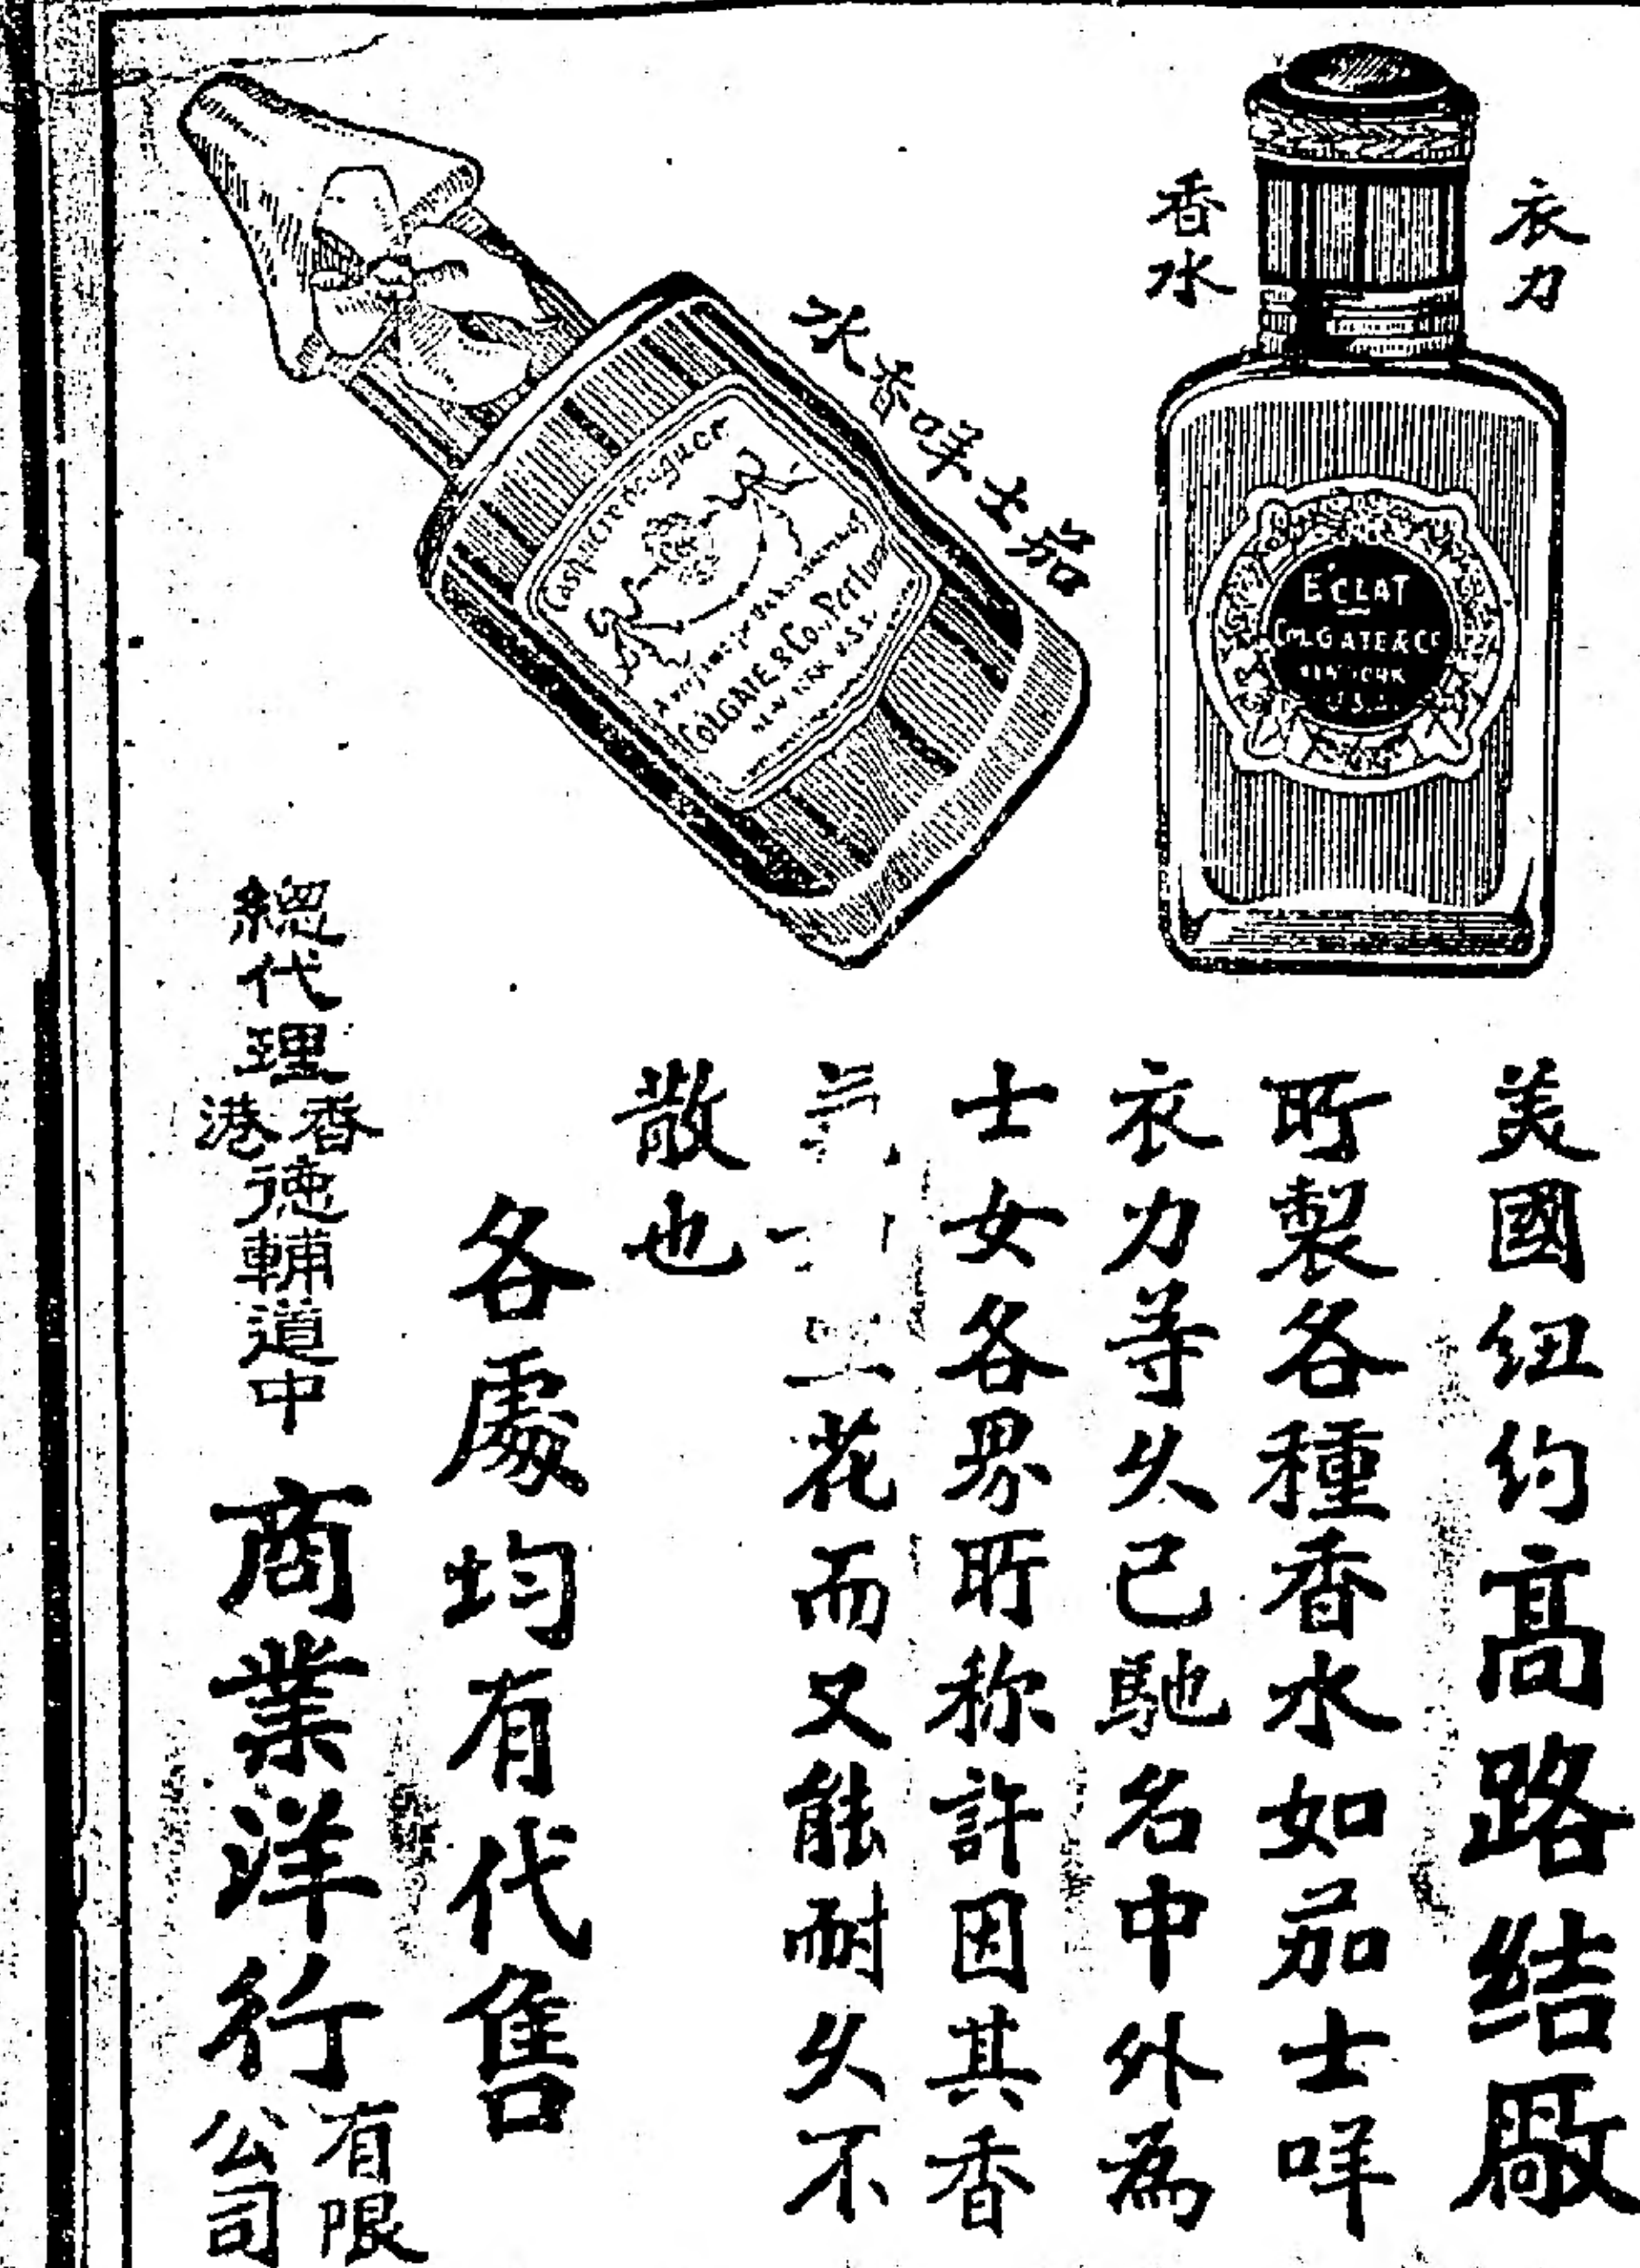 衣力
香水
茄士咩香水
E'CLAT
COLGATE & CO
NEW YORK
U.S.A.
Cashmere Bouquet
COLGATE & Co., Perfumers
NEW YORK U.S.A.
美國纽约高路结廠
所製各種香水如茄士咩
衣力等久已馳名中外為
士女各界所称許因其香
花而又能耐久不
散也
各處均有代售
總代理香港德輔道中商業洋行有限公司